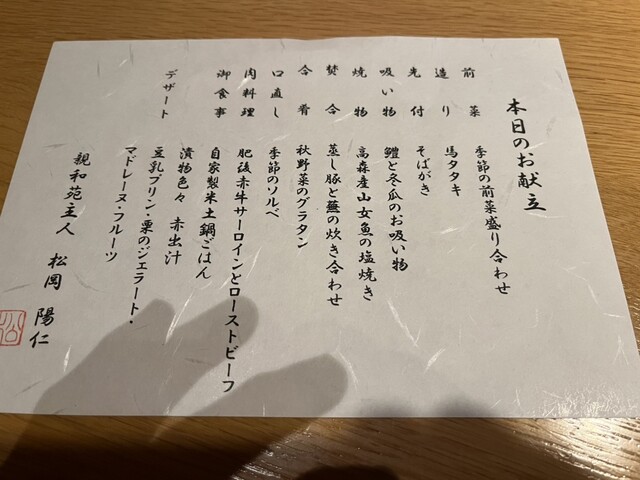 本日のお献立
前菜 季節の前菜盛り合わせ
造り 馬タタキ
先付 そばがき
吸い物 鱧と冬瓜のお吸い物
焼物 高森産山女魚の塩焼き
焚合 蒸し豚と蕪の炊き合わせ
合肴 秋野菜のグラタン
口直し 季節のソルベ
肉料理 肥後赤牛サーロインとローストビーフ
御食事 自家製米土鍋ごはん
漬物色々 赤出汁
デザート 豆乳プリン・栗のジェラート・
マドレーヌ・フルーツ
親和苑主人 松岡 陽仁